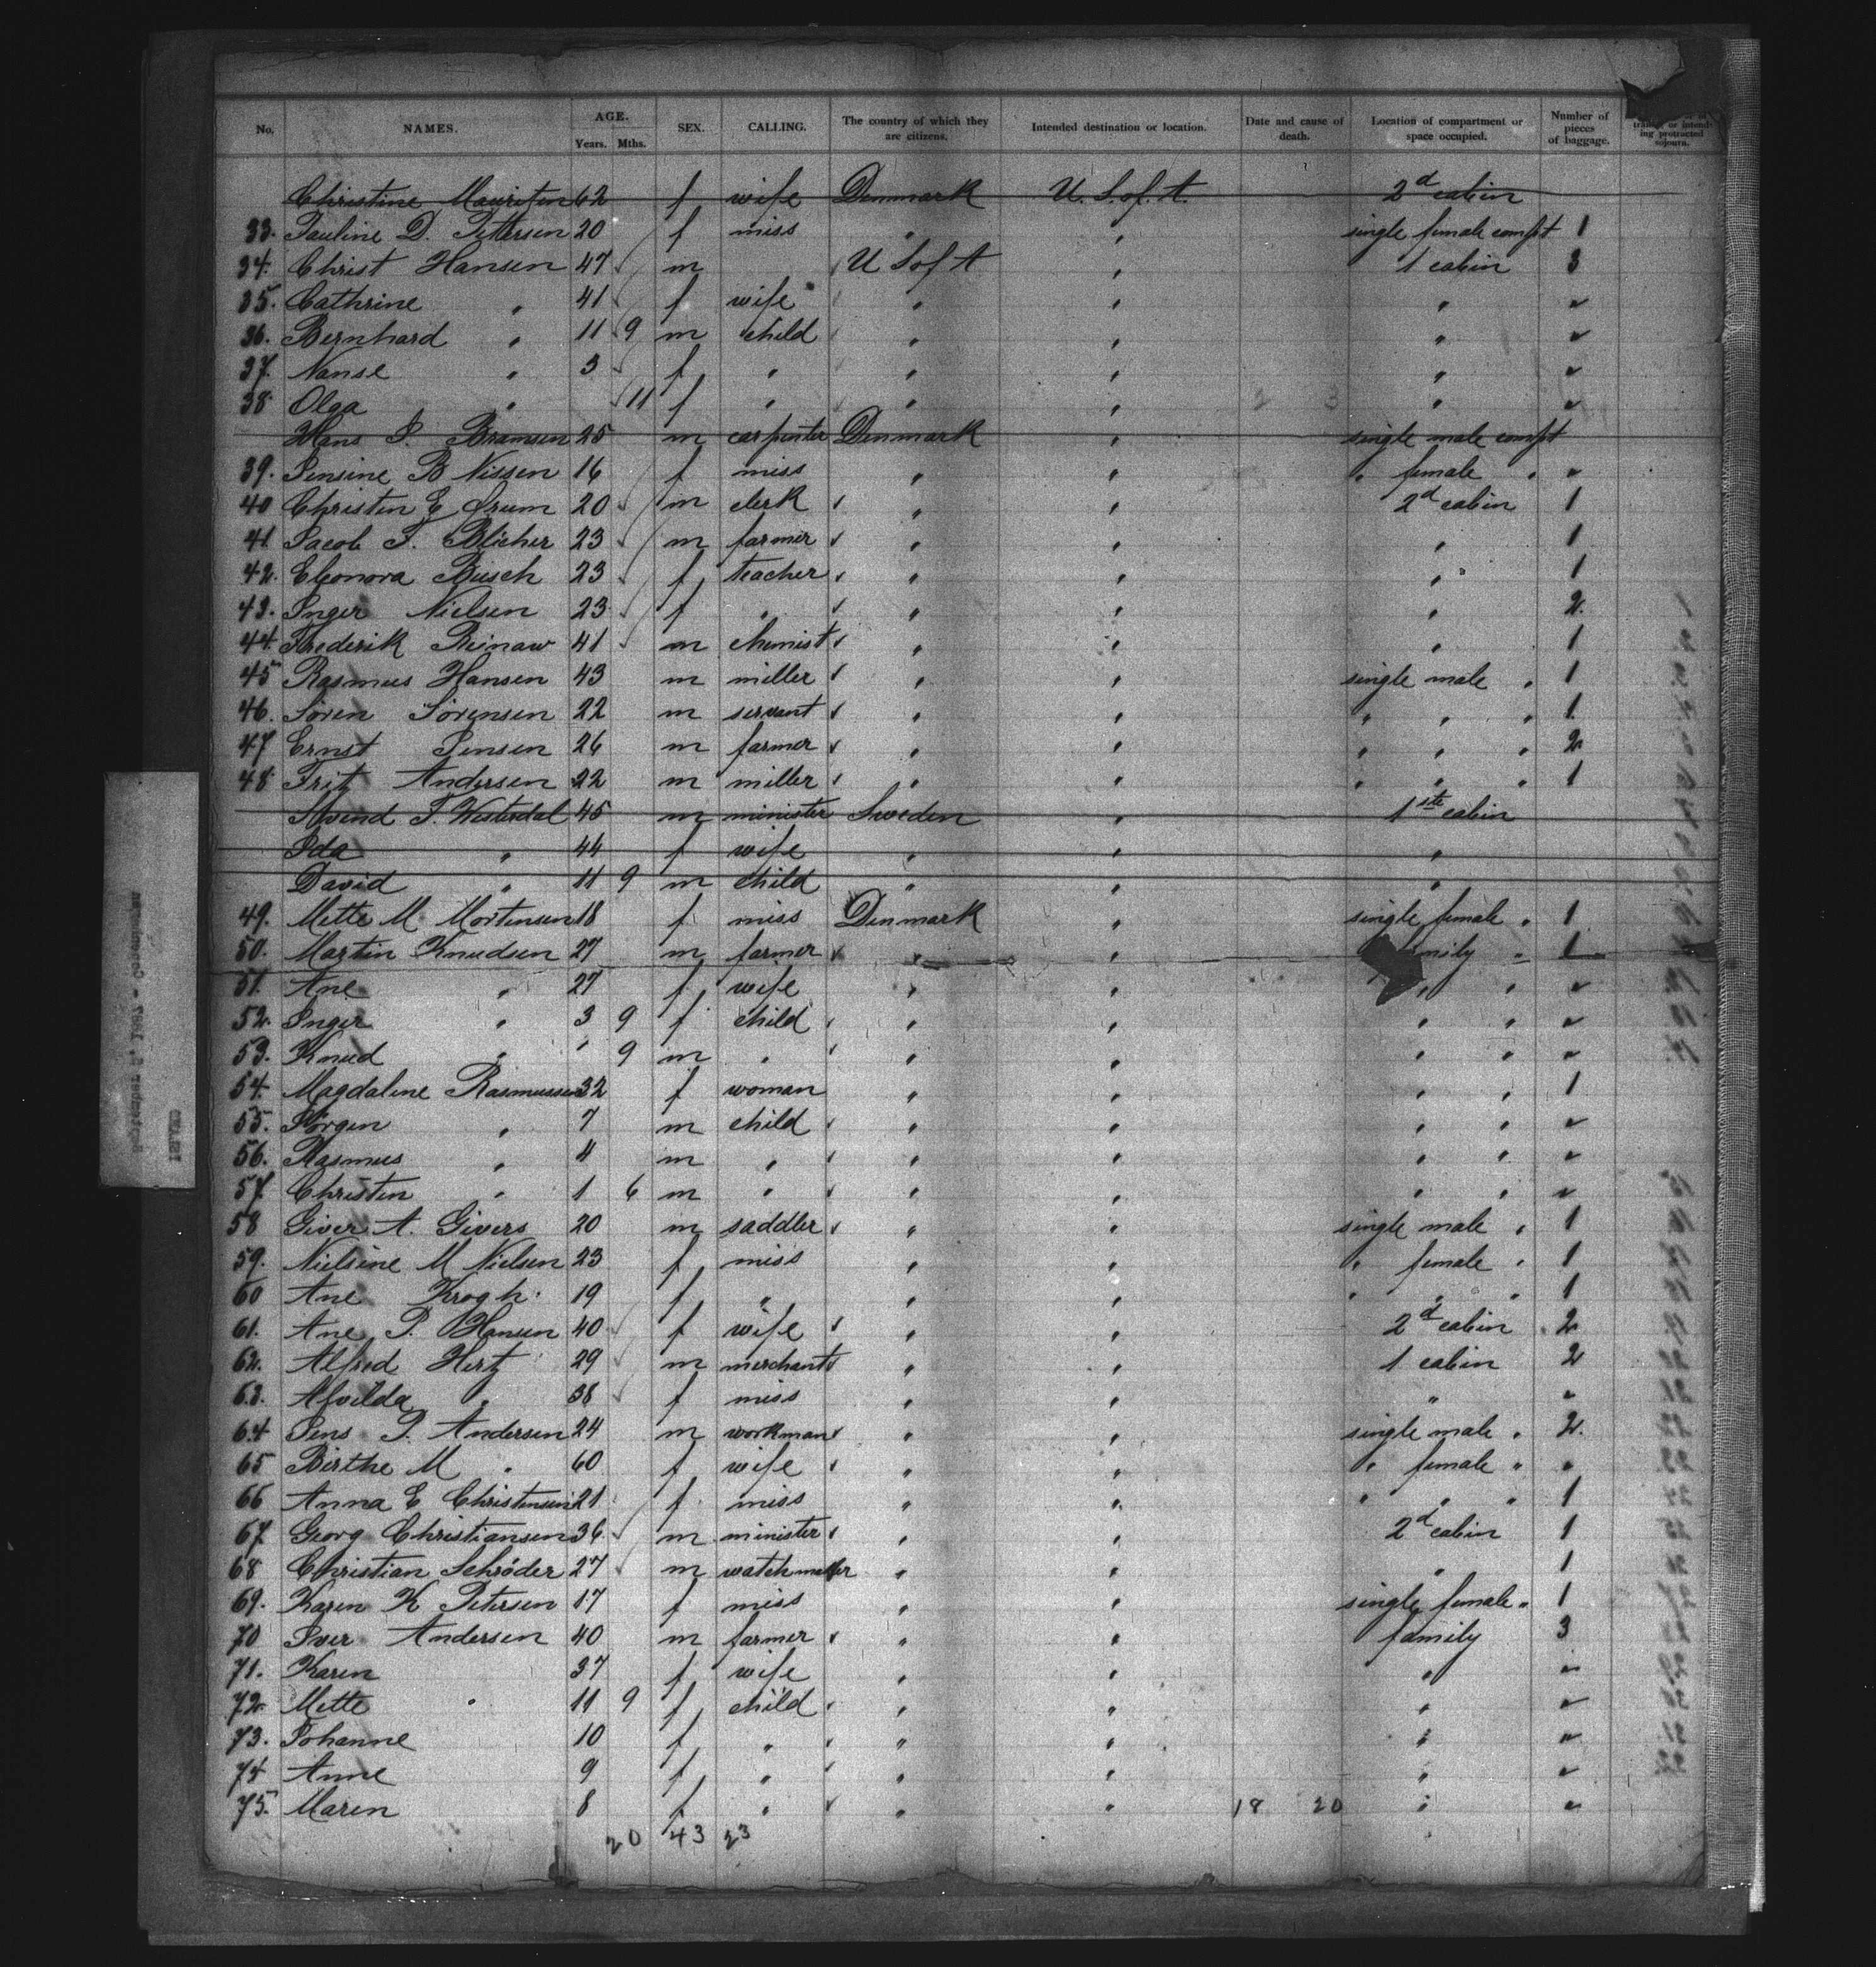 No. NAMES. AGE. Years. Mths. SEX. CALLING. The country of which they are citizens. Intended destination or location. Date and cause of death. Location of compartment or space occupied. Number of pieces of baggage.
Christine Mauritsen 62 f wife Denmark U. S. of. A. 2d cabin
33. Pauline D. Pettersen 20 f miss " " single female compt 1
34. Christ Hansen 47 m U S of A " 1 cabin 3
35. Cathrine " 41 f wife " " " "
36. Bernhard " 11 9 m child " " " "
37. Nanse " 3 f " " " " "
38 Olga " 11 f " " " " "
Hans P. Bramsen 25 m carpenter Denmark " single male compt
39. Jensine B Nissen 16 f miss " " " female " "
40 Christen E Drum 20 m clerk " " 2d cabin 1
41. Jacob F. Blicher 23 m farmer " " " 1
42. Eleonora Busch 23 f teacher " " " 1
43. Inger Nielsen 23 f " " " " 2
44. Frederik Reinaw 41 m chemist " " " 1
45 Rasmus Hansen 43 m miller " " single male " 1
46. Sören Sörensen 22 m servant " " " " " 1
47 Ernst Jensen 26 m farmer " " " " " 2
48 Frit Andersen 22 m miller " " " " " 1
Svend F. Westerdal 45 m minister Sweden " 1ste cabin
Ida " 44 f wife " " "
David " 11 9 m child " " "
49. Mette M. Mortensen 18 f miss Denmark " single female " 1
50. Martin Knudsen 27 m farmer " " family " 1
51. Ane " 27 f wife " " " " "
52. Inger " 3 9 f child " " " " "
53. Knud " " 9 m " " " " " "
54. Magdaline Rasmussen 32 f woman " " " " 1
55. Jörgen " 7 m child " " " " "
56. Rasmus " 4 m " " " " " "
57. Christen " 1 6 m " " " " " "
58 Giver A. Givers 20 m saddler " " single male " 1
59. Nielsine M Nielsen 23 f miss " " " female " 1
60 Ane Krogh 19 f " " " " " " 1
61. Ane P. Hansen 40 f wife " " 2d cabin 2
62. Alfred Hertz 29 m merchant " " 1 cabin 2
63. Alvilda " 38 f miss " " " "
64 Jens P. Andersen 24 m workman " " single male " 2
65 Birthe M " 60 f wife " " " female " "
66 Anna E Christensen 21 f miss " " " " " 1
67. Georg Christiansen 36 m minister " " 2d cabin 1
68 Christian Schröder 27 m watchmaker " " " 1
69. Karen K Petersen 17 f miss " " single female " 1
70 Iver Andersen 40 m farmer " " family 3
71. Karen 37 f wife " " " "
72. Mette " 11 9 f child " " " "
73. Johanne 10 f " " " " "
74 Anne 9 f " " " " "
75. Maren 8 f " " " 18 20 " "
20 43 23